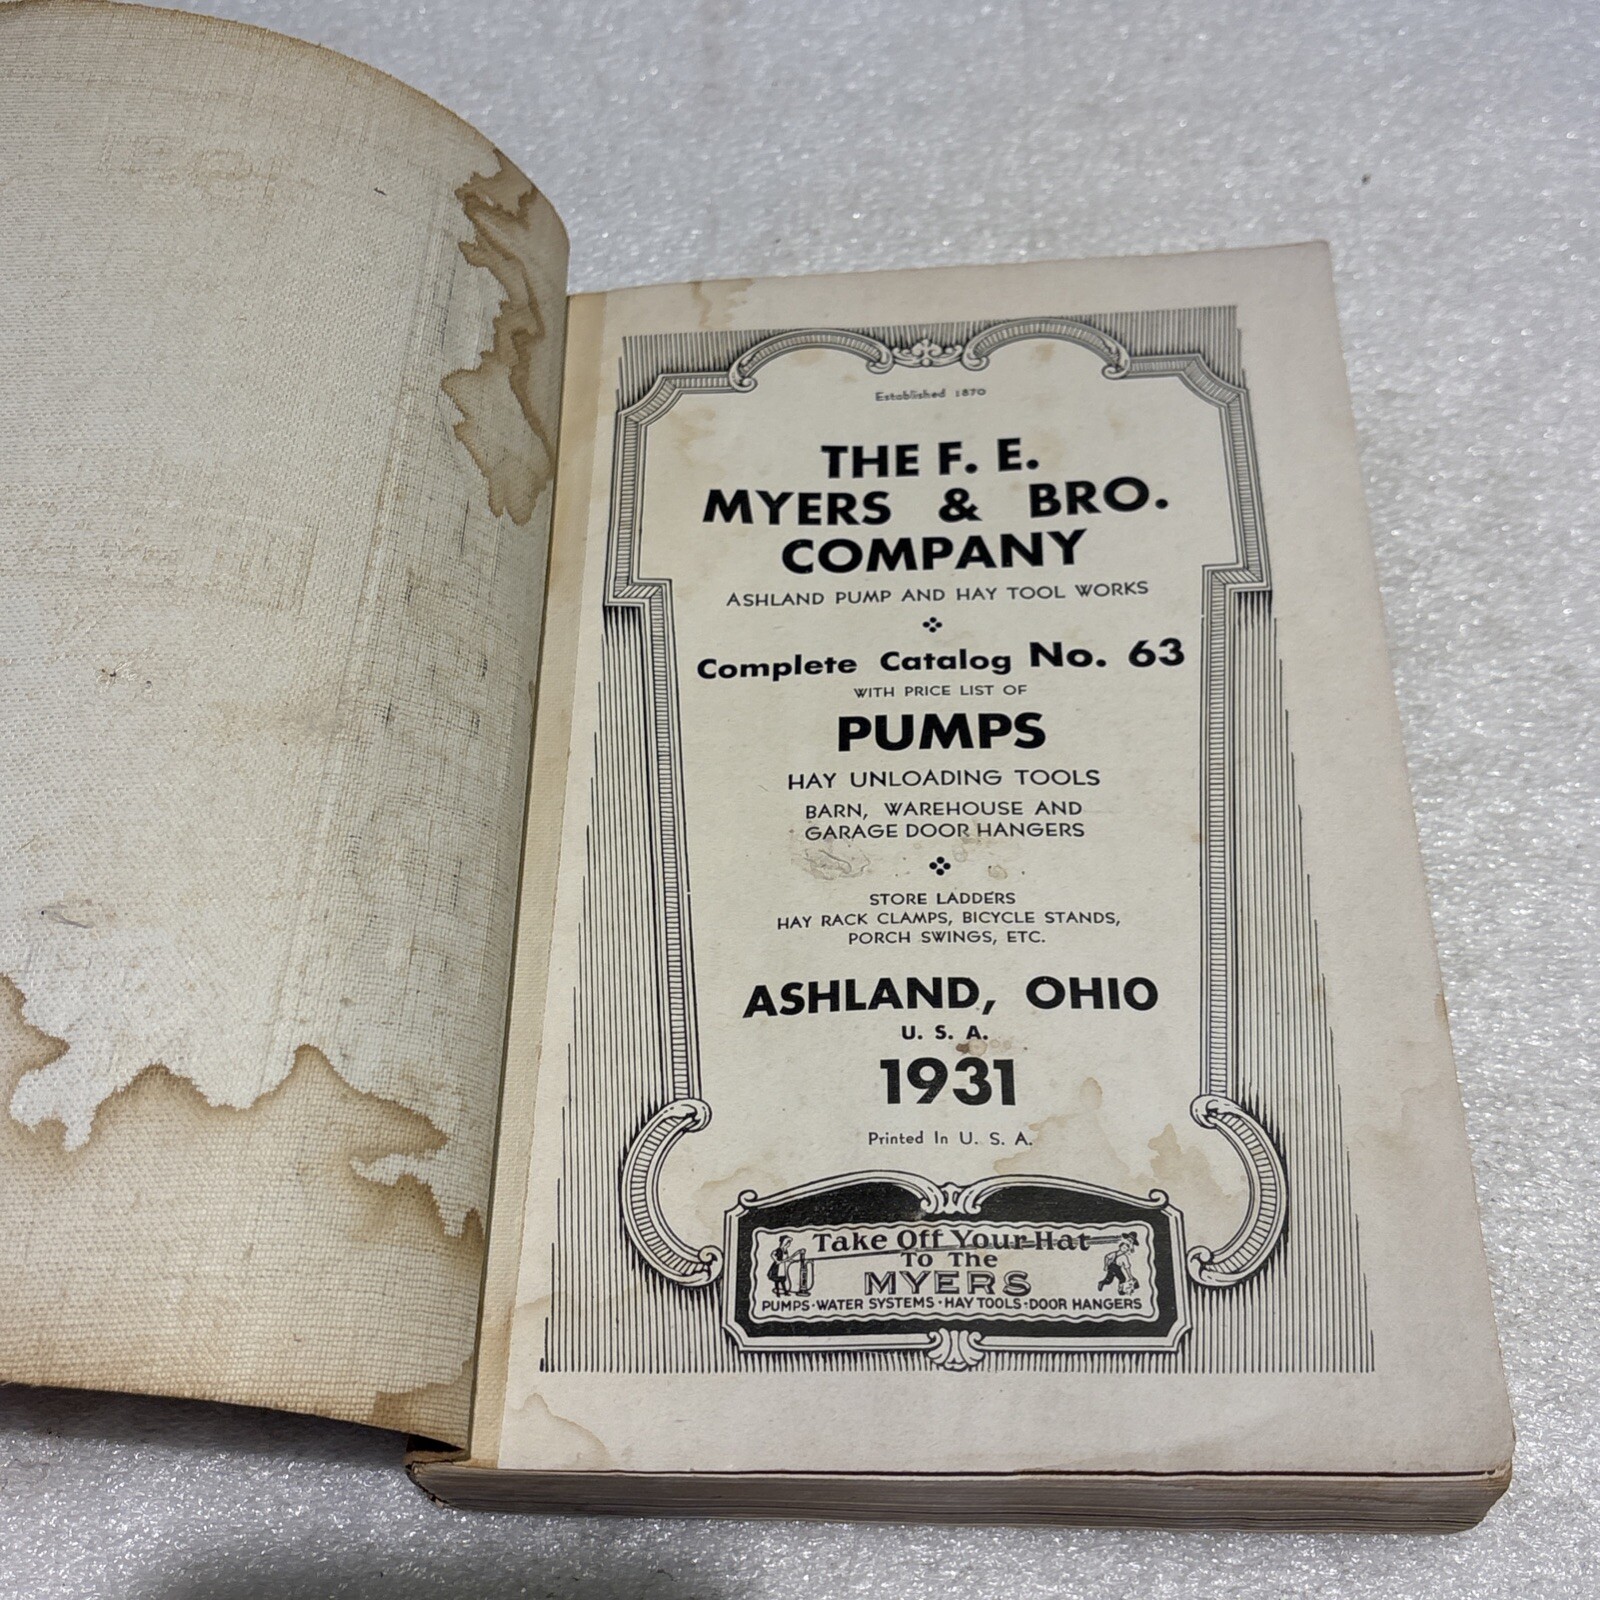 Established 1870
THE F. E.
MYERS & BRO.
COMPANY
ASHLAND PUMP AND HAY TOOL WORKS
Complete Catalog No. 63
WITH PRICE LIST OF
PUMPS
HAY UNLOADING TOOLS
BARN, WAREHOUSE AND
GARAGE DOOR HANGERS
STORE LADDERS
HAY RACK CLAMPS, BICYCLE STANDS,
PORCH SWINGS, ETC.
ASHLAND, OHIO
U. S. A.
1931
Printed In U. S. A.
Take Off Your Hat
To The
MYERS
PUMPS·WATER SYSTEMS·HAY TOOLS·DOOR HANGERS